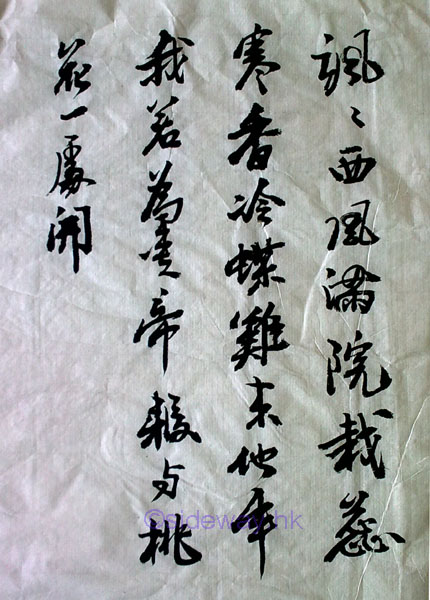 颯々西風滿院栽蕊
寒香冷蝶難来他年
我若為青帝報与桃
花一處開
©sideway.hk